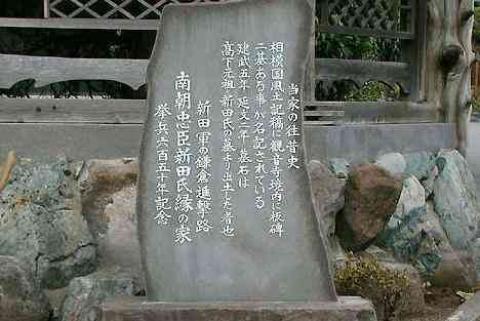 当家の往昔史
相模国風土記稿に観音寺境内に板碑
二基ある事が名記されている
建武五年 延文二年 墓石は
高下元祖 新田氏の墓より出土した者也
新田軍の鎌倉進撃路
南朝忠臣新田氏縁の家
挙兵六百五十年記念